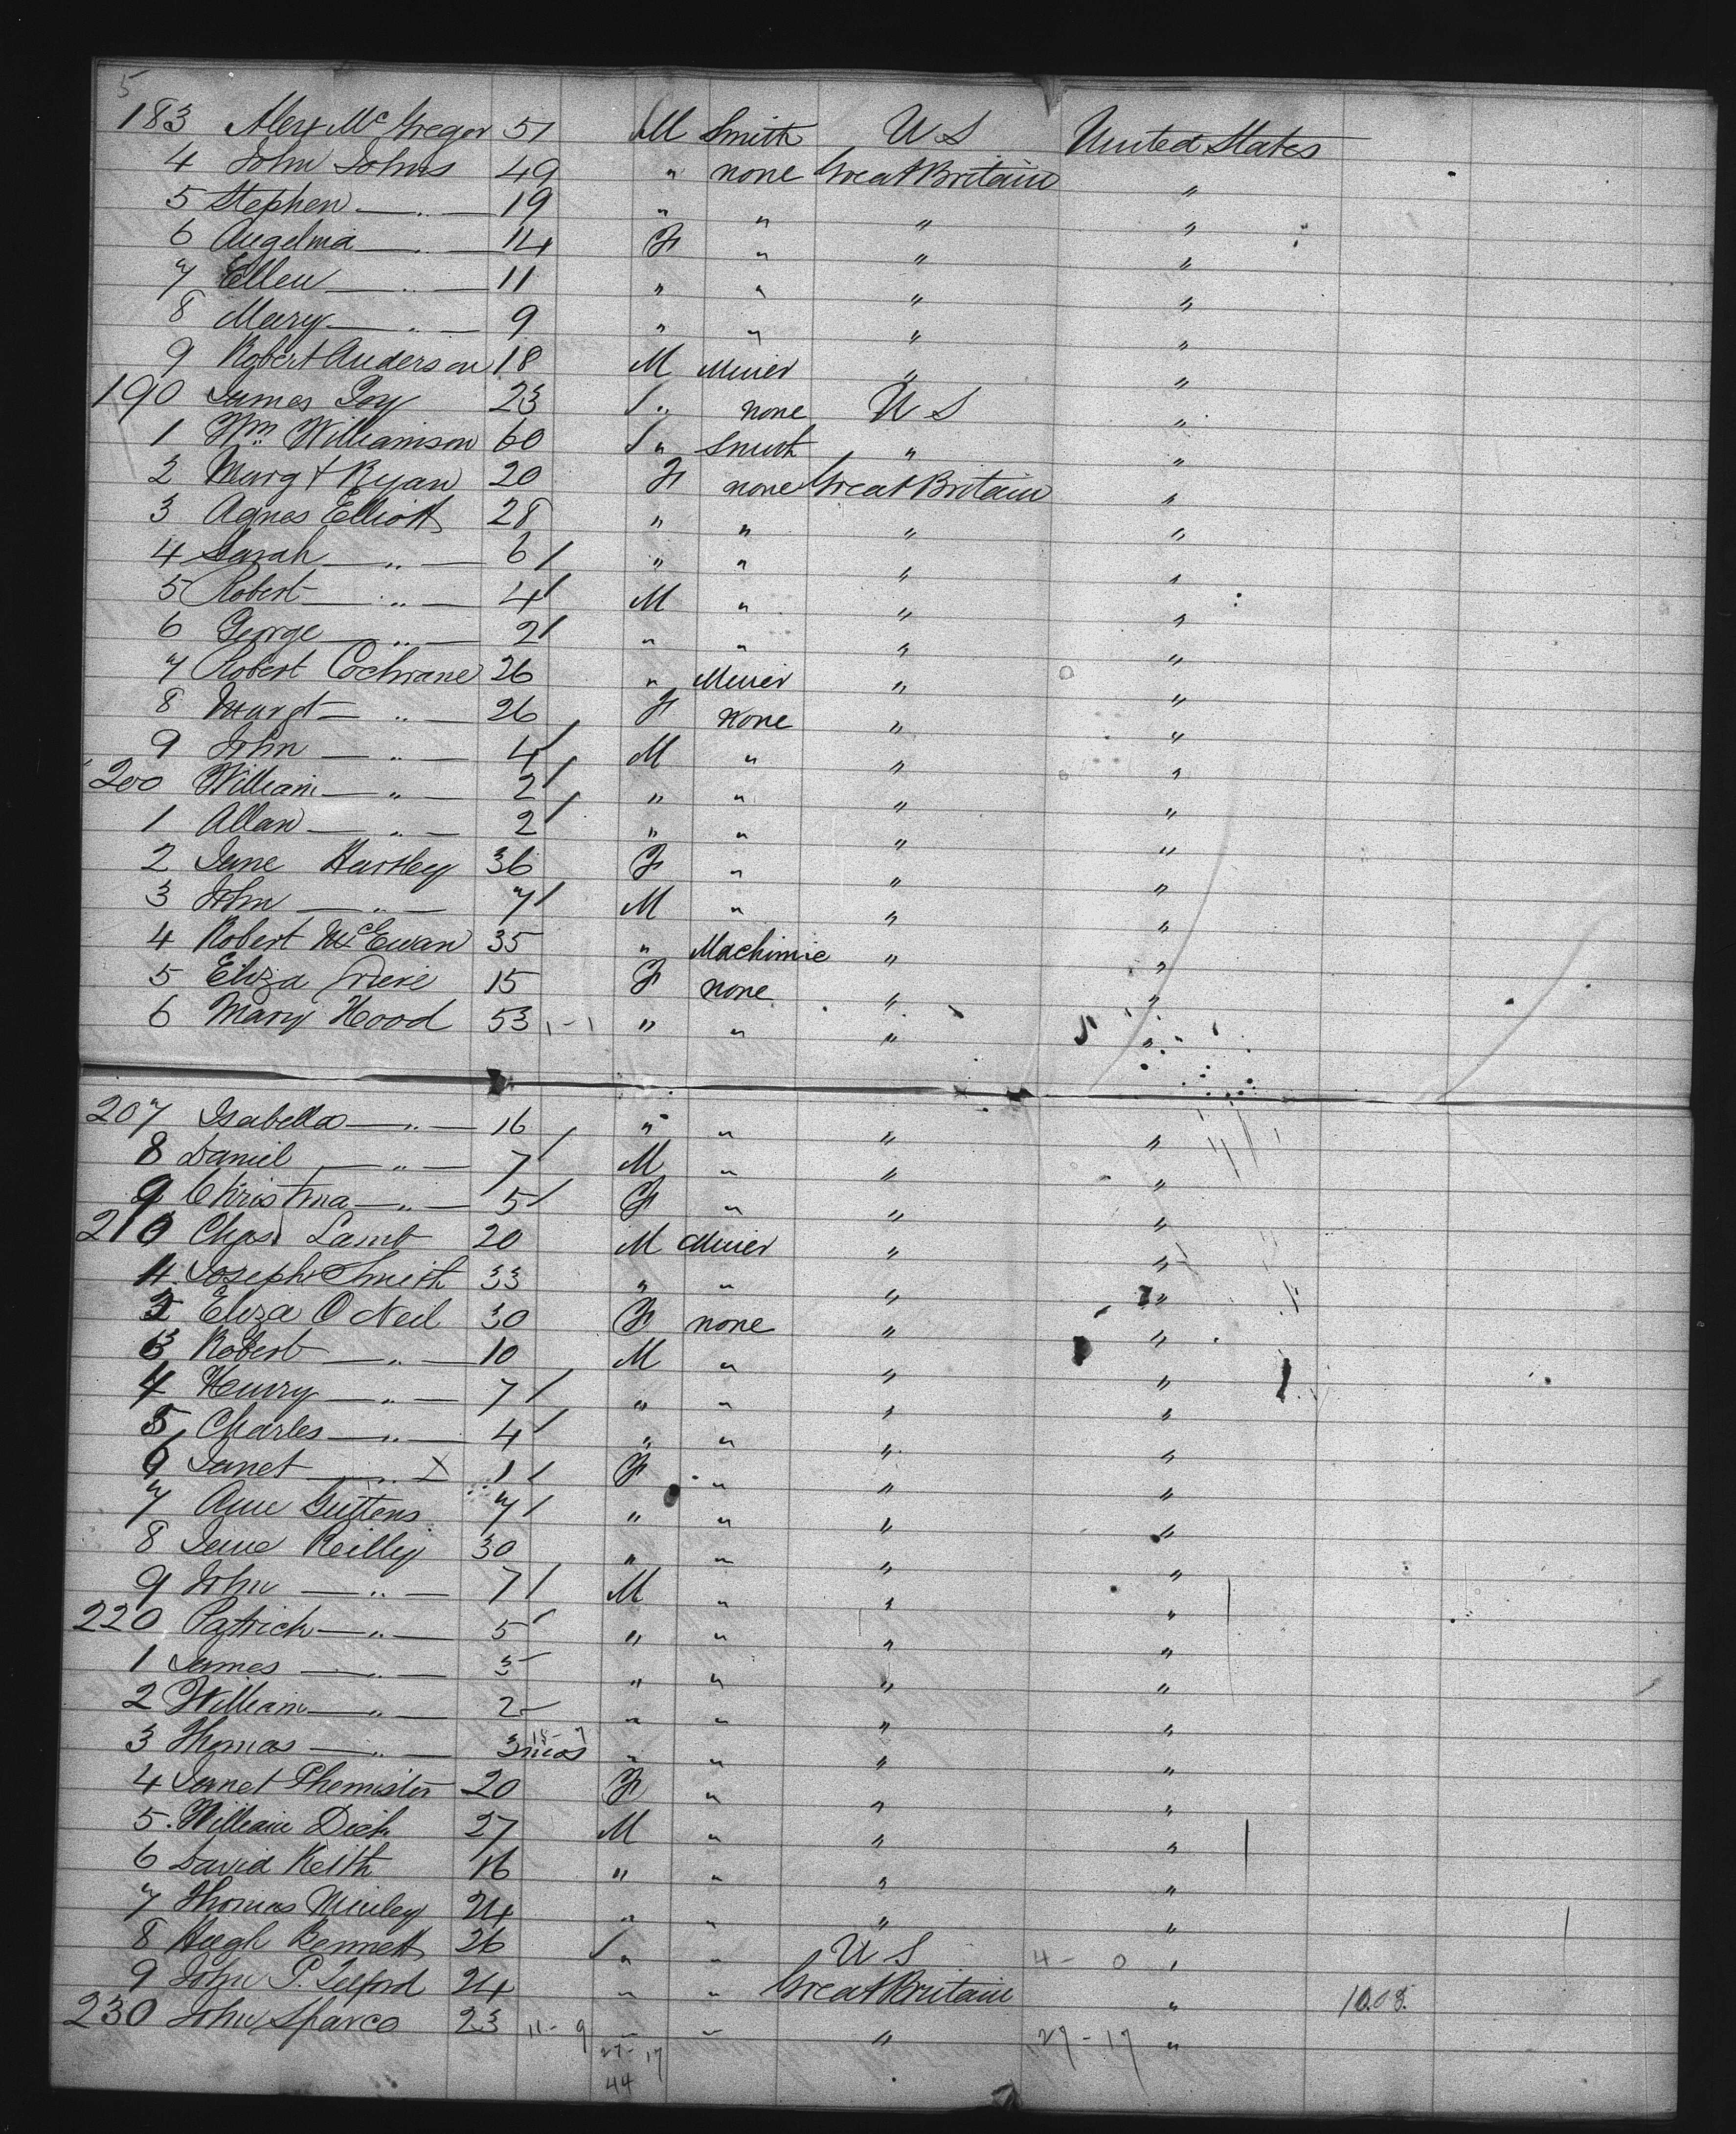 5
183 Alex McGregor 51 M Smith U S United States
4 John Johns 49 " none Great Britain "
5 Stephen — " — 19 " " " "
6 Angelina — " — 14 F " " "
7 Ellen — " — 11 " " " "
8 Mary — " — 9 " " " "
9 Robert Anderson 18 M Miner " "
190 James Foy 23 / " none U S "
1 Wm Williamson 60 / " Smith " "
2 Margt Ryan 20 F none Great Britain "
3 Agnes Elliott 28 " " " "
4 Sarah — " — 6 / " " " "
5 Robert — " — 4 / M " " "
6 George — " — 2 / " " " "
7 Robert Cochrane 26 " Miner " "
8 Margt — " — 26 F None " "
9 John — " — 4 / M " " "
200 William — " — 2 / " " " "
1 Allan — " — 2 / " " " "
2 Jane Hartley 36 F " " "
3 John — " — 7 / M " " "
4 Robert McEwan 35 " Machinie " "
5 Eliza 15 F none " "
6 Mary Hood 53 1-1 " " " "
207 Isabella — " — 16 " " " "
8 Daniel — " — 7 / M " " "
9 Christina — " — 5 / F " " "
210 Chas Lamb 20 M Miner " "
1 Joseph Smith 33 " " " "
2 Eliza O Neil 30 F none " "
3 Robert — " — 10 M " " "
4 Henry — " — 7 / " " " "
5 Charles — " — 4 / " " " "
6 Janet — " — X 1 / F " " "
7 Ann Gittens 7 / " " " "
8 Jane Reilly 30 " " " "
9 John — " — 7 / M " " "
220 Patrick — " — 5 / " " " "
1 James — " — 3 " " " "
2 William — " — 2 " " " "
3 Thomas — " — 3 mos " " " "
4 Janet Phemister 20 F " " "
5 William Dick 27 M " " "
6 David Keith 16 " " " "
7 Thomas 24 " " " "
8 Hugh Bennett 26 / " " U S 4 - 0 "
9 John P. Telford 24 " " Great Britain " 10.03.
230 John Sparco 23 11 - 9 " " " 27 - 17 "
27 - 17
44